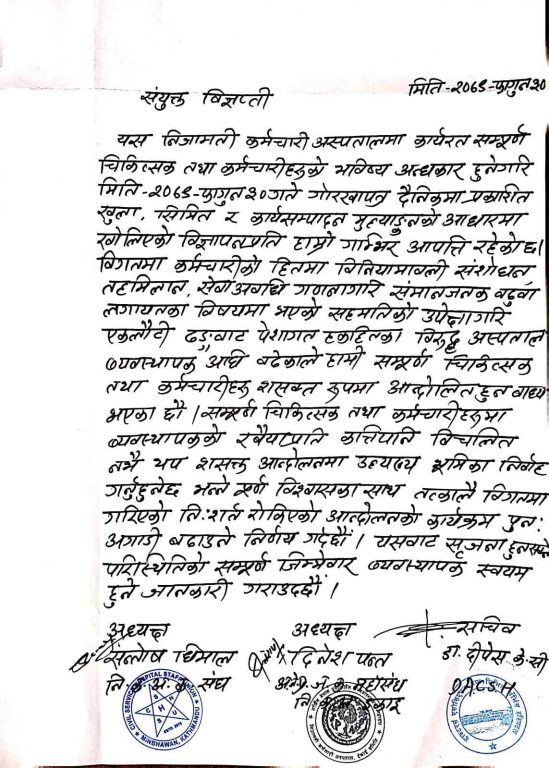 मिति-२०६८-फागुन ३०
संयुक्त विज्ञप्ती
यस निजामती कर्मचारी अस्पतालमा कार्यरत सम्पूर्ण
चिकित्सक तथा कर्मचारीहरुको भविष्य अन्धकार हुनेगरि
मिति-२०६८-फागुन ३० गते गोरखापत्र दैनिकमा प्रकाशित
खुला, सिमित र कार्यसम्पादन मुल्याङ्कनको आधारमा
खोलिएको विज्ञापनप्रति हाम्रो गम्भिर आपत्ति रहेको छ।
विगतमा कर्मचारीको हितमा विनियामावली संशोधन,
तहमिलान, सेवा अवधि गणनागरि संमानजनक बढुवा
लगायतका विषयमा भएको सहमतिको उपेक्षागरि
एकलौटी ढङ्गवाट पेशागत हकहितका विरुद्ध अस्पताल
व्यवस्थापक अघि बढेकाले हामी सम्पूर्ण चिकित्सक
तथा कर्मचारीहरु शसक्त रुपमा आन्दोलित हुन वाध्य
भएका छौं । सम्पूर्ण चिकित्सक तथा कर्मचारीहरुमा
व्यवस्थापकको रवैयाप्रति कत्तिपनि विचलित
नभै थप शसक्त आन्दोलनमा भुमिका निर्वाह
गर्नुहुनेछ भन्ने पूर्ण विश्वासका साथ तत्कालै विगतमा
गरिएको नि:शर्त रोकिएको आन्दोलनको कार्यक्रम पुन:
अगाडी बढाउने निर्णय गर्दछौं । यसवाट सृजना हुनसक्ने
परिस्थितिको सम्पूर्ण जिम्मेवार व्यवस्थापक स्वयम
हुने जानकारी गराउदछौं ।
अध्यक्ष अध्यक्ष सचिव
सन्तोष धिमाल दिनेश पन्त डा. दीपेस के.सी
नि. क. अ. क. संघ महासंघ OACSH
CIVIL SERVICE HOSPITAL STAFF UNION
MINBHAWAN, KATHMANDU